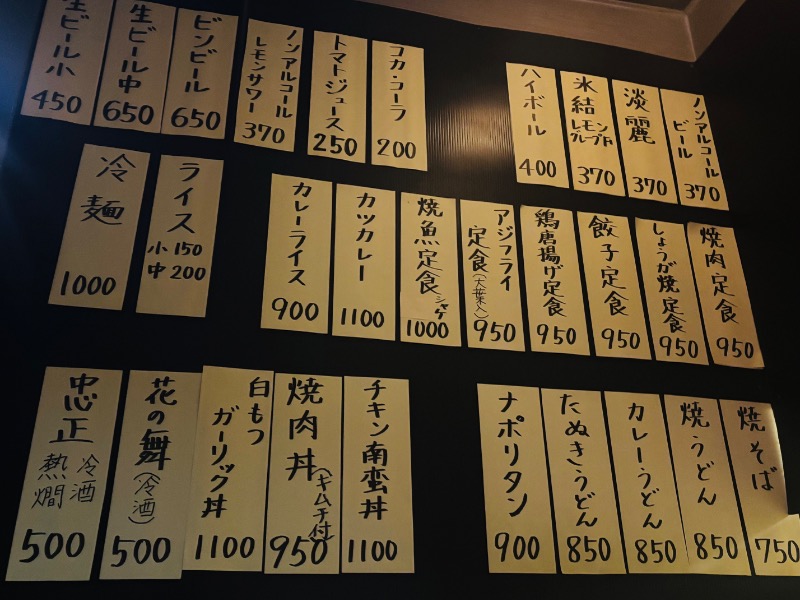 生ビール小
450
生ビール中
650
ビンビール
650
ノンアルコール
レモンサワー
370
トマトジュース
250
コカ・コーラ
200
ハイボール
400
氷結
レモン
グレープF
370
淡麗
370
ノンアルコール
ビール
370
冷麺
1000
ライス
小 150
中 200
カレーライス
900
カツカレー
1100
焼魚定食
シャケ
1000
アジフライ
定食(大葉入)
950
鶏唐揚げ定食
950
餃子定食
950
しょうが焼定食
950
焼肉定食
950
忠正
冷酒
熱燗
500
花の舞
(冷酒)
500
白もつ
ガーリック丼
1100
焼肉丼
(キムチ付)
950
チキン南蛮丼
1100
ナポリタン
900
たぬきうどん
850
カレーうどん
850
焼うどん
850
焼そば
750